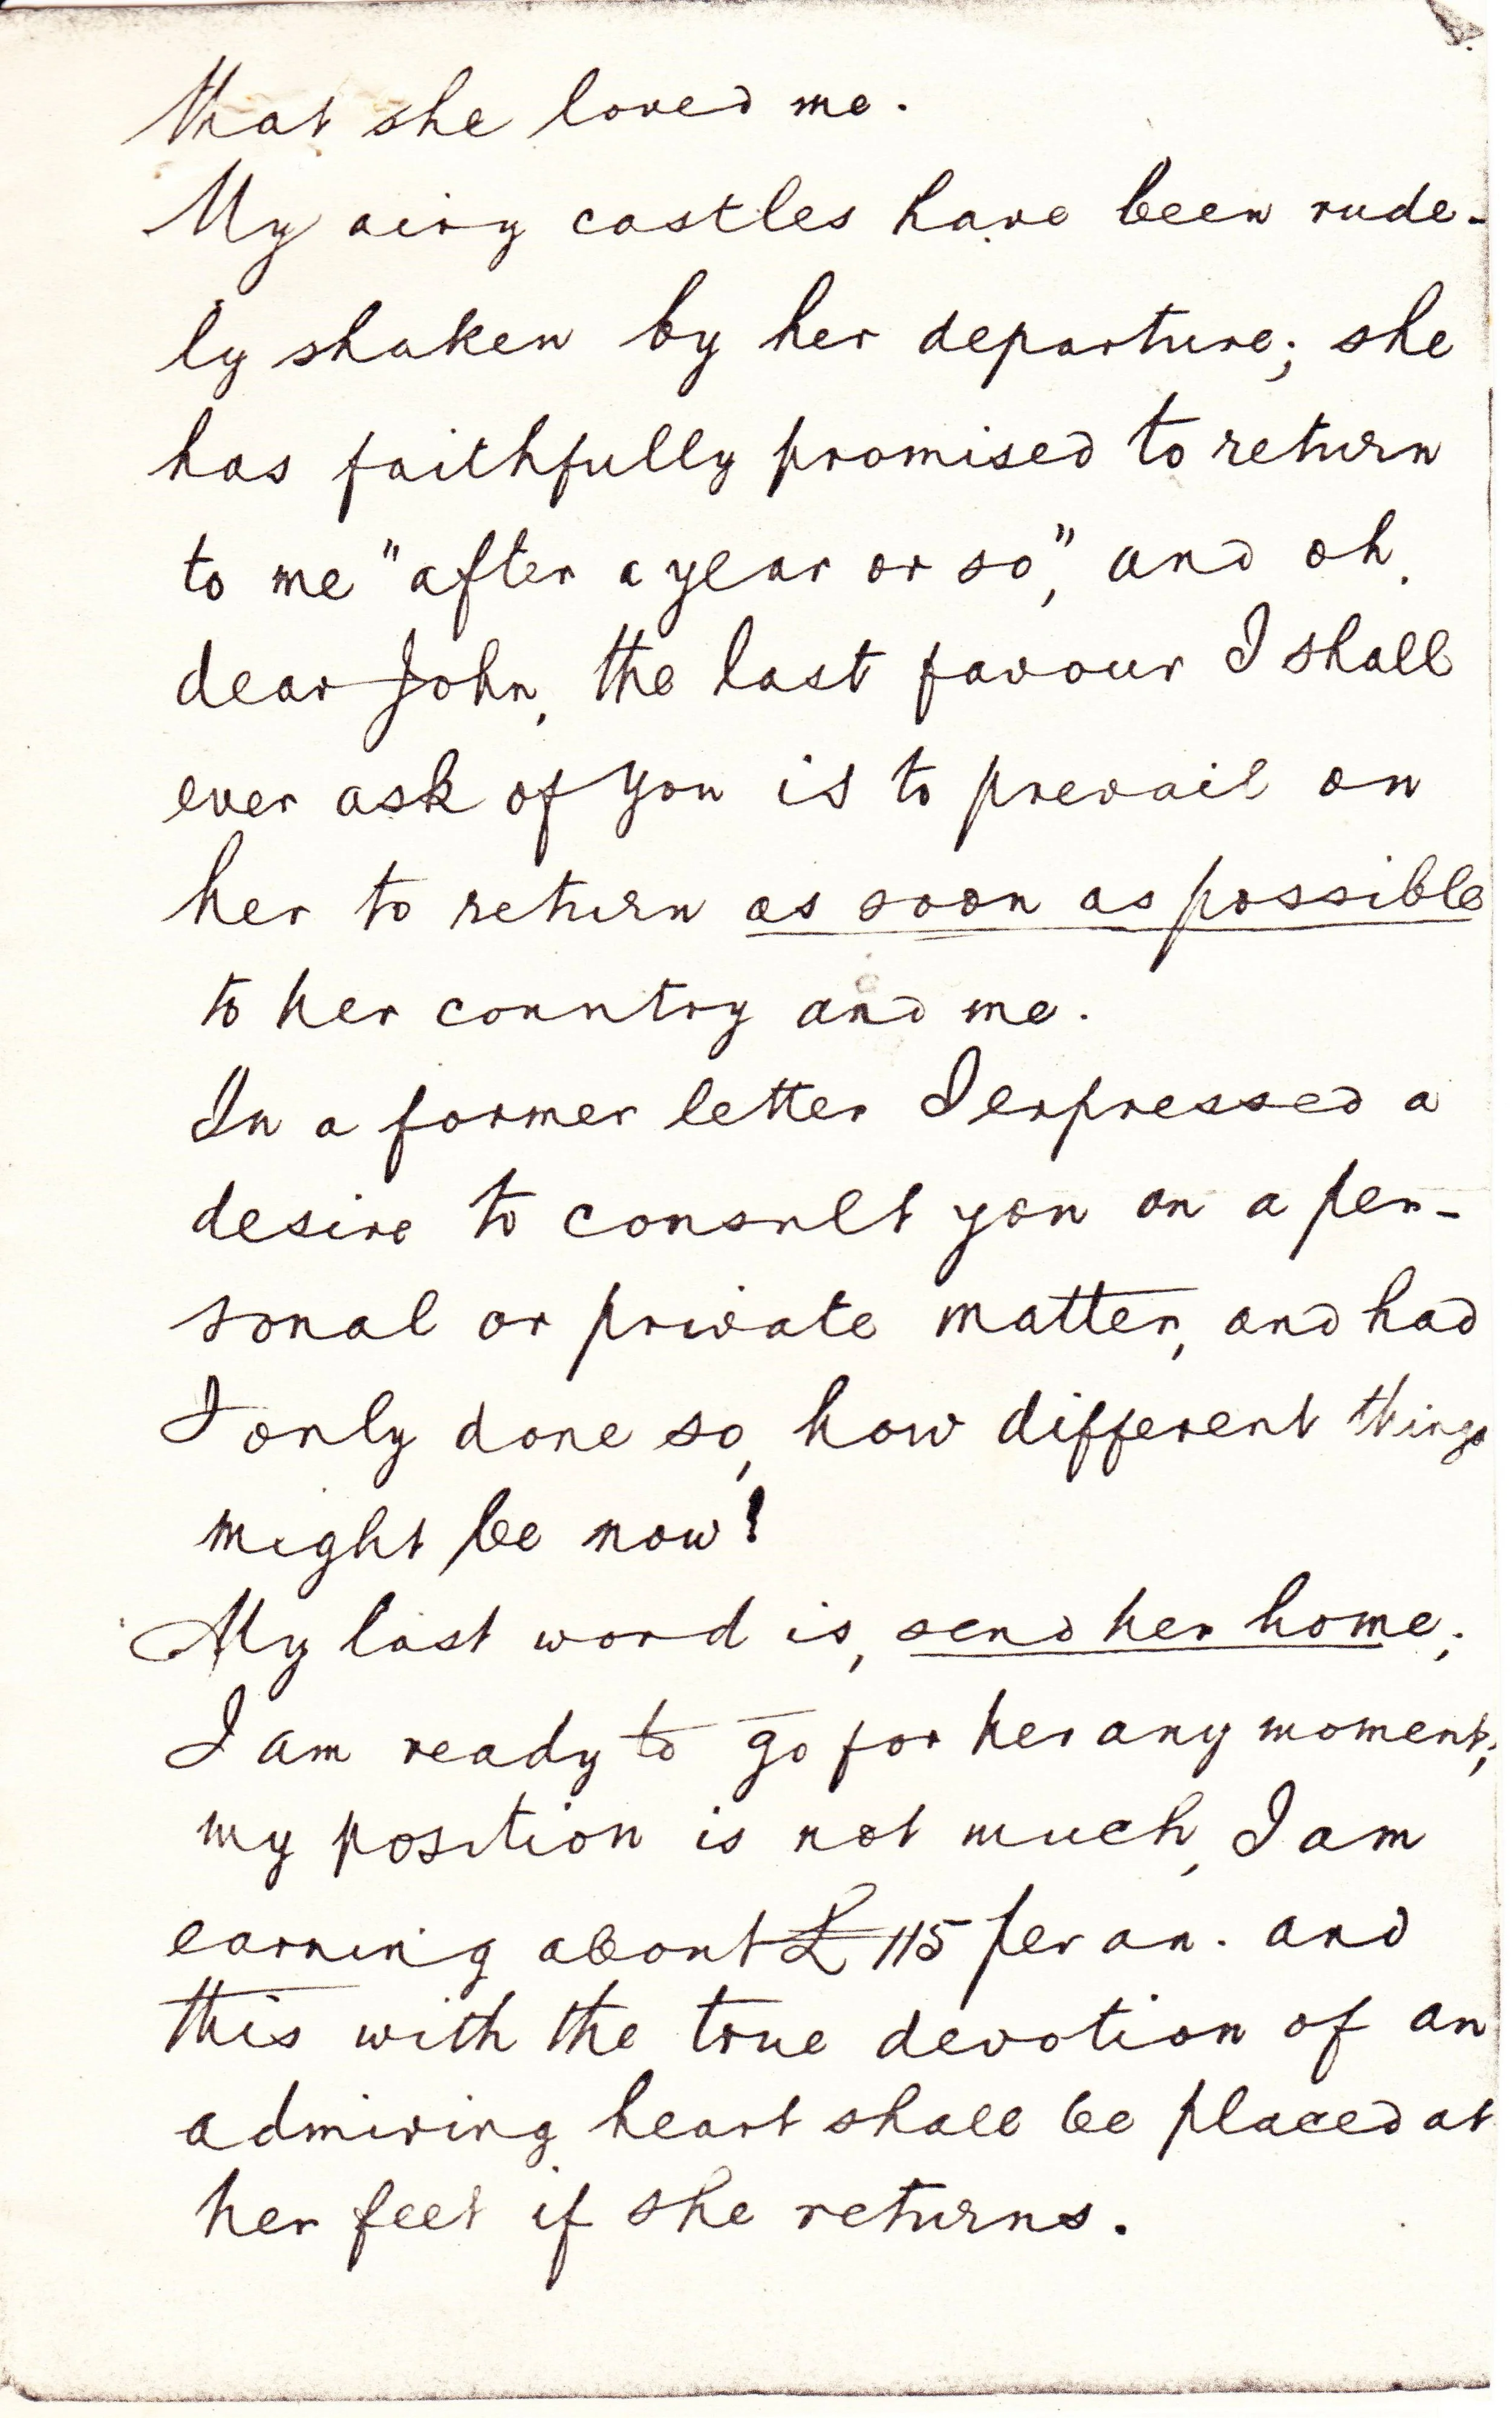 that she loved me.
My airy castles have been rude-
ly shaken by her departure; she
has faithfully promised to return
to me "after a year or so", and oh,
dear John, the last favour I shall
ever ask of you is to prevail on
her to return as soon as possible
to her country and me.
In a former letter I expressed a
desire to consult you on a per-
sonal or private matter, and had
I only done so, how different things
might be now!
My last word is, send her home;
I am ready to go for her any moment;
my position is not much, I am
earning about £115 per an. and
this with the true devotion of an
admiring heart shall be placed at
her feet if she returns.